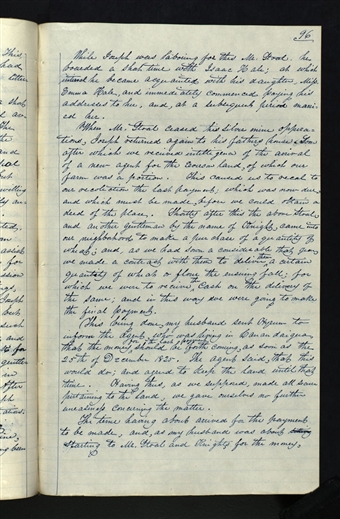 96
While Joseph was laboring for this Mr. Stoal. he
boarded a short time with Isaac Hale; at which
interval he became acquainted with his daughter, Miss
Emma Hale, and immediately commenced paying his
addresses to her, and, at a subsequent period mari-
ed her.
When Mr. Stoal ceased his silver mine oppera-
tions, Joseph returned again to his father's house. Soon
after which we received inteligence of the arrival
of a new agent for the Everson land, of which our
farm was a portion. This caused us to recal to
our recolection the last payment, which was now due,
and which must be made, before we could obtain a
deed of the place. Shortly after this the above Stoal,
and another gentleman by the name of Knight, came into
our neighborhood to make a purchase of a quantity of
wheat; and, as we had sown a considerable that year,
we made a contract with them to deliver a certain
quantity of wheat or flour the ensuing fall; for
which we were to receive, cash on the delivery of
the same; and in this way we were going to make
the final payment.
This being done, my husband sent Hyrum to
inform the agent, who was living in Canandaigua,
that the money should be forthcoming as soon as the
25th of December 1825. The agent said, that this
would do; and agreed to keep the land until that
time. Having this, as we supposed, made all secure
pertaining to the land, we gave ourselves no further
uneasiness concerning the matter.
The time having about arrived for the payment
to be made, and, as my husband was about
starting to Mr. Stoal and Knights for the money,